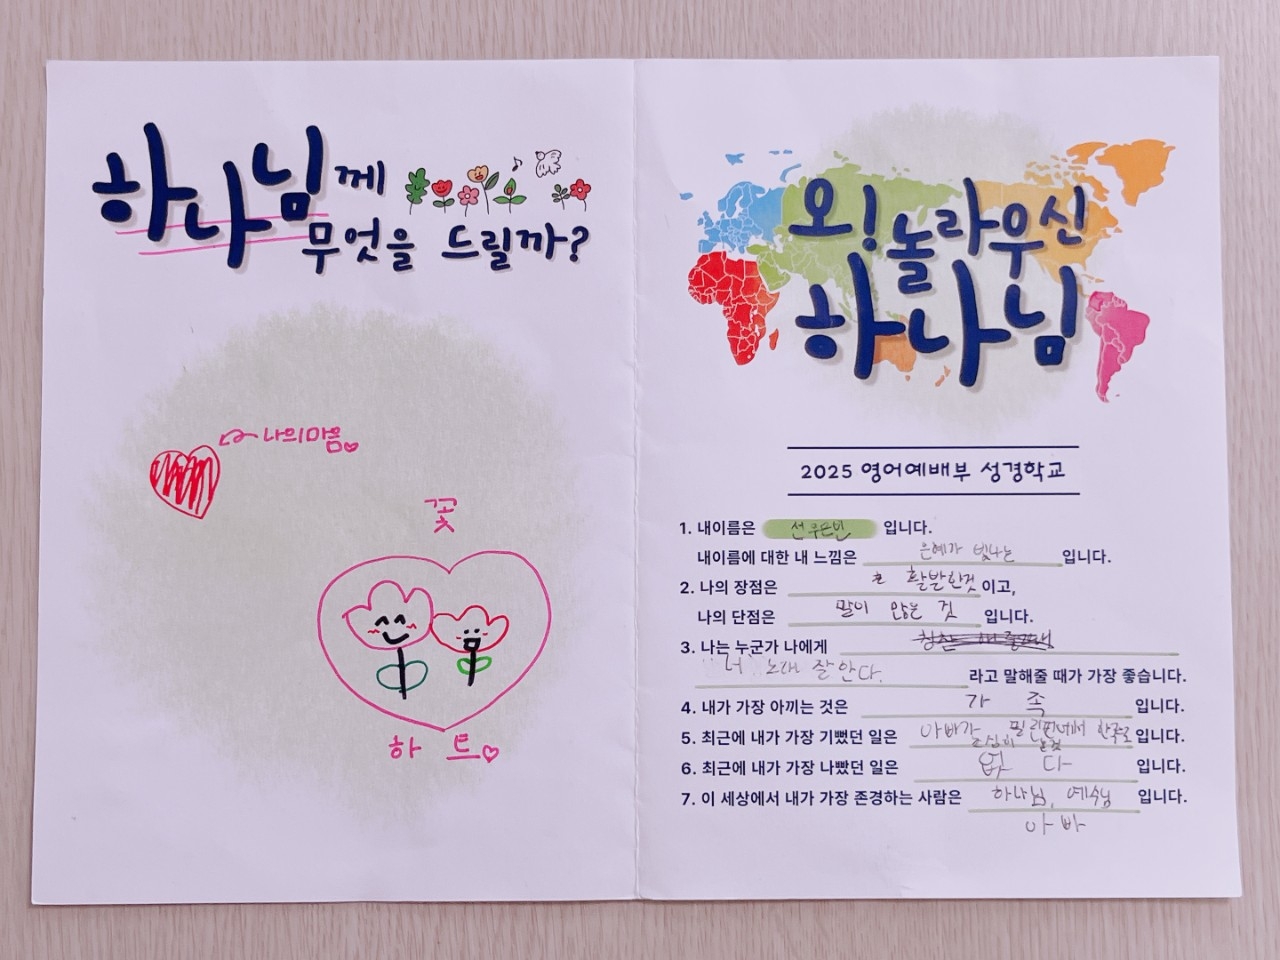 하나님께
무엇을 드릴까?
나의마음
꽃
하 트
오! 놀라우신
하나님
2025 영어예배부 성경학교
1. 내이름은 선우은빈 입니다.
내이름에 대한 내 느낌은 은혜가 빛나는 입니다.
2. 나의 장점은 활발한것 이고,
나의 단점은 말이 않은 것 입니다.
3. 나는 누군가 나에게
너 노래 잘한다. 라고 말해줄 때가 가장 좋습니다.
4. 내가 가장 아끼는 것은 가 족 입니다.
5. 최근에 내가 가장 기뻤던 일은 아빠가 필리핀에서 한국으로 입니다.
6. 최근에 내가 가장 나빴던 일은 없 다 입니다.
7. 이 세상에서 내가 가장 존경하는 사람은 하나님, 예수님 입니다.
아 빠